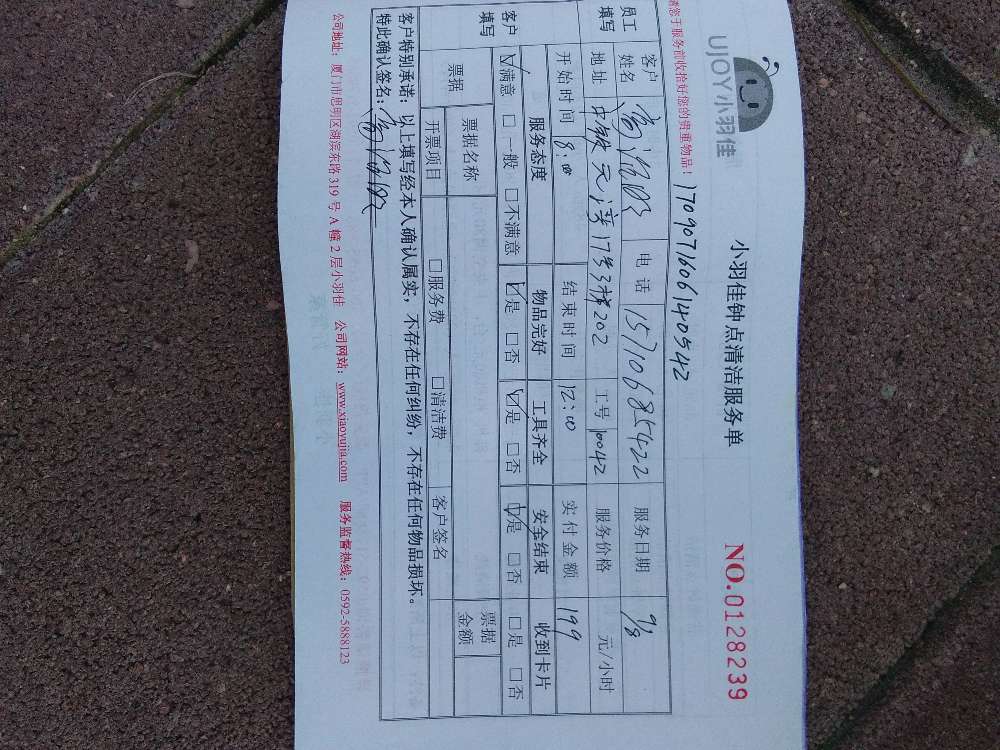 UJOY小羽佳
小羽佳钟点清洁服务单
NO.0128239
请您于服务前收拾好您的贵重物品！
1709071606140542
员工填写
客户姓名
电话 15710685422
服务日期 9/8
地址 中骏元湾17号3梯202
工号 10042
服务价格 元/小时
开始时间 8:00
结束时间 12:00
实付金额 199
客户填写
服务态度 物品完好 工具齐全 安全结束 收到卡片
☑满意 □一般 □不满意 ☑是 □否 ☑是 □否 ☑是 □否 □是 □否
票据 票据名称 票据金额
开票项目 □服务费 □清洁费 客户签名
客户特别承诺：以上填写经本人确认属实，不存在任何纠纷，不存在任何物品损坏。
特此确认签名：
公司地址：厦门市思明区湖滨东路319号A幢2层小羽佳 公司网站：www.xiaoyujia.com 服务监督热线：0592-5888123